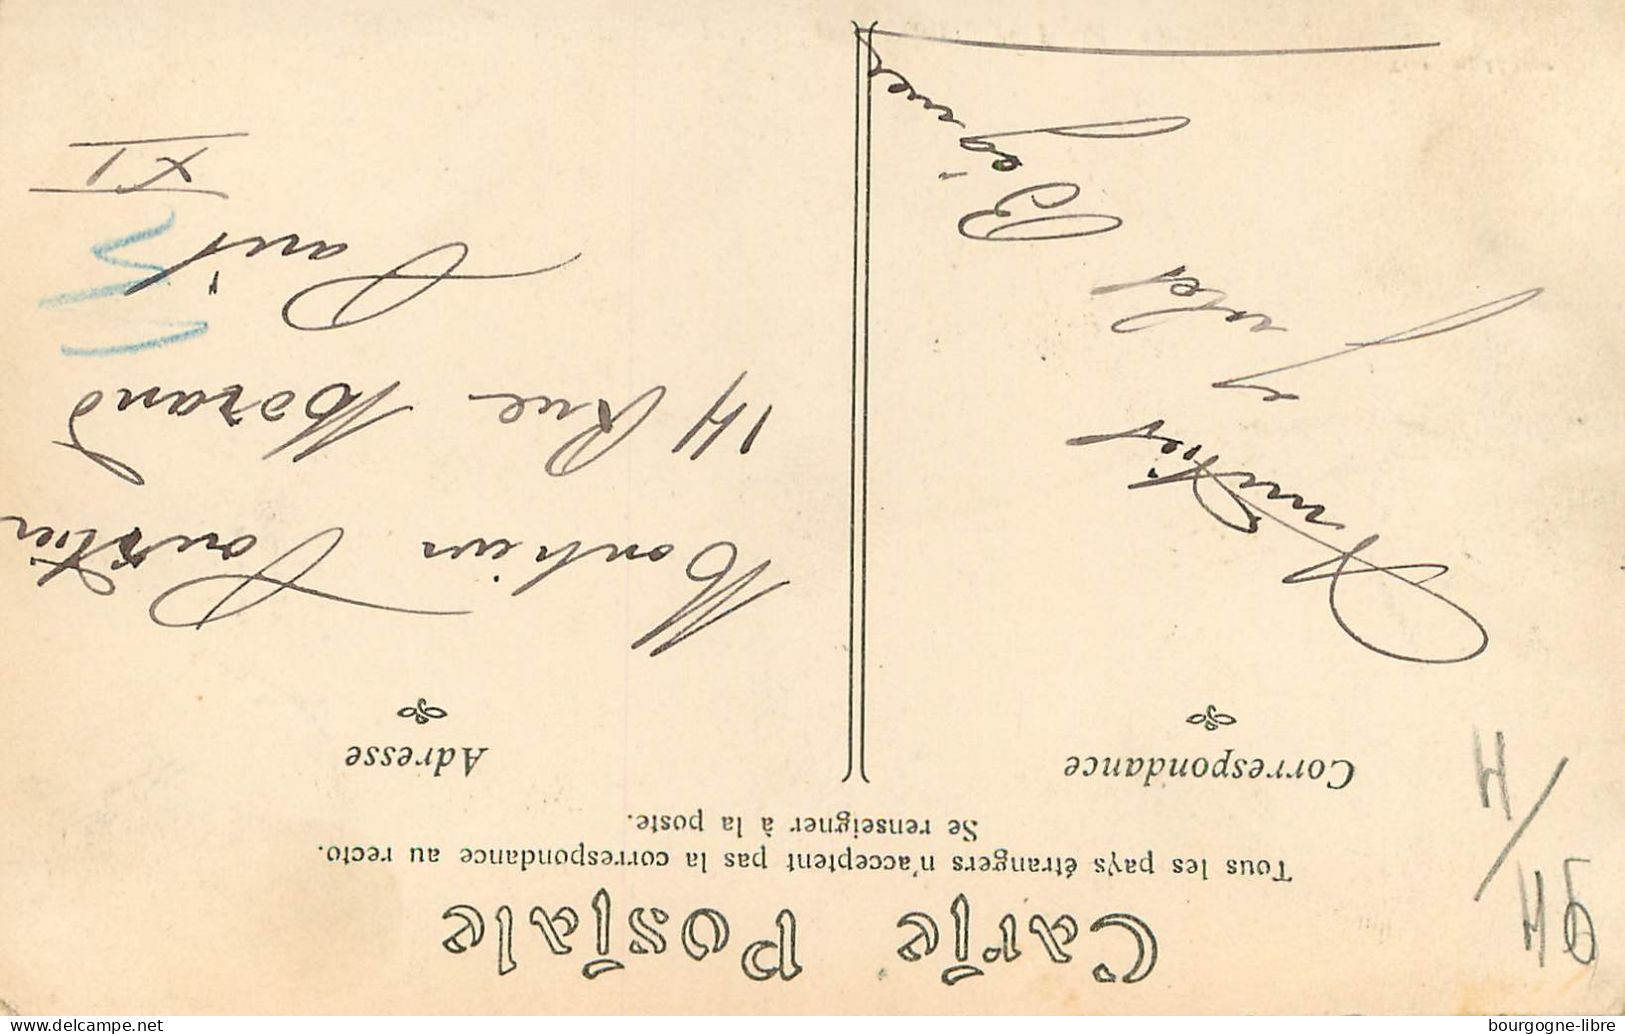 Carte Postale
Tous les pays étrangers n'acceptent pas la correspondance au recto.
Se renseigner à la poste.
Correspondance
Amitiés
Jules
Bégué
Adresse
Monsieur
14 Rue Morand
Paris
XI
94
/
H
www.delcampe.net
bourgogne-libre